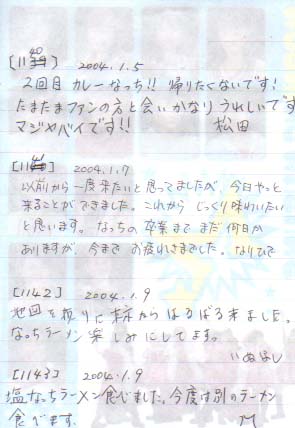 [1140] 2004.1.5
2回目 カレーなっち!! 帰りたくないです!
たまたまファンの方と会いかなりうれしいです
マジヤバイです!! 松田
[1141] 2004.1.7
以前から一度来たいと思ってましたが、今日やっと
来ることができました。これから じっくり味わいたい
と思います。 なっちの 卒業まで まだ 何日か
ありますが、今まで お疲れさまでした。 なりひで
[1142] 2004.1.9
地図を頼りに 東京からはるばる来ました。
なっちラーメン楽しみにしてます。
いぬほし
[1143] 2004.1.9
塩なっちラーメン食べました。今度は別のラーメン
食べます。 M